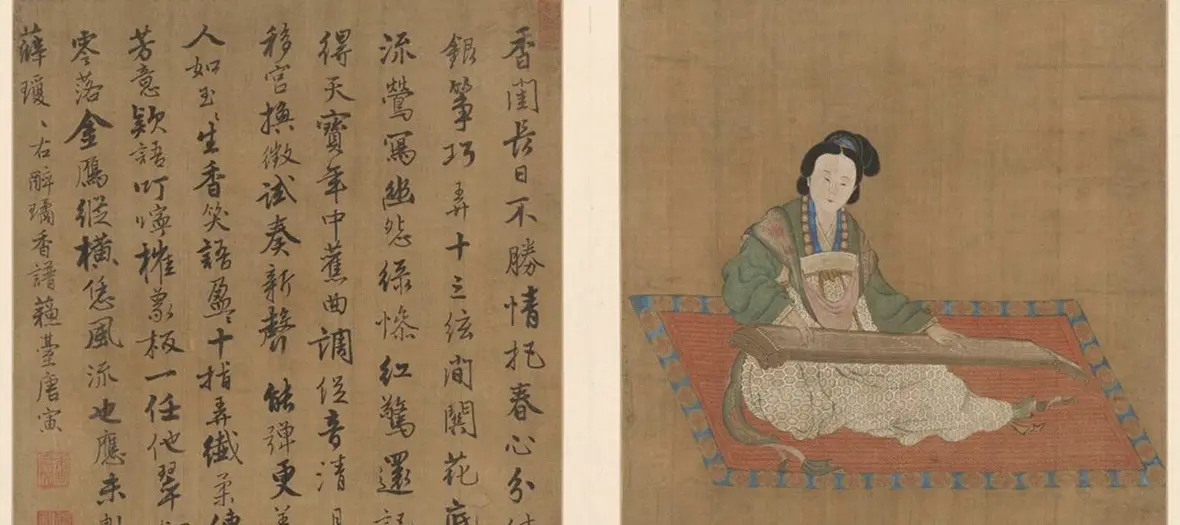 香閨長日不勝情把春心分
銀箏巧弄十三弦間關花底
流鶯罵幽怨綠慘紅驚還記
得天寶年中舊曲調從音清
移宮換徵試奏新聲能彈更
人如玉〻生香笑語盈〻十指弄纖柔傳
芳意欵語叮嚀摧象板一任他翠
零落金鴈縱橫恁風流也應未
薛瓊〻右醉璚香譜蘇臺唐寅